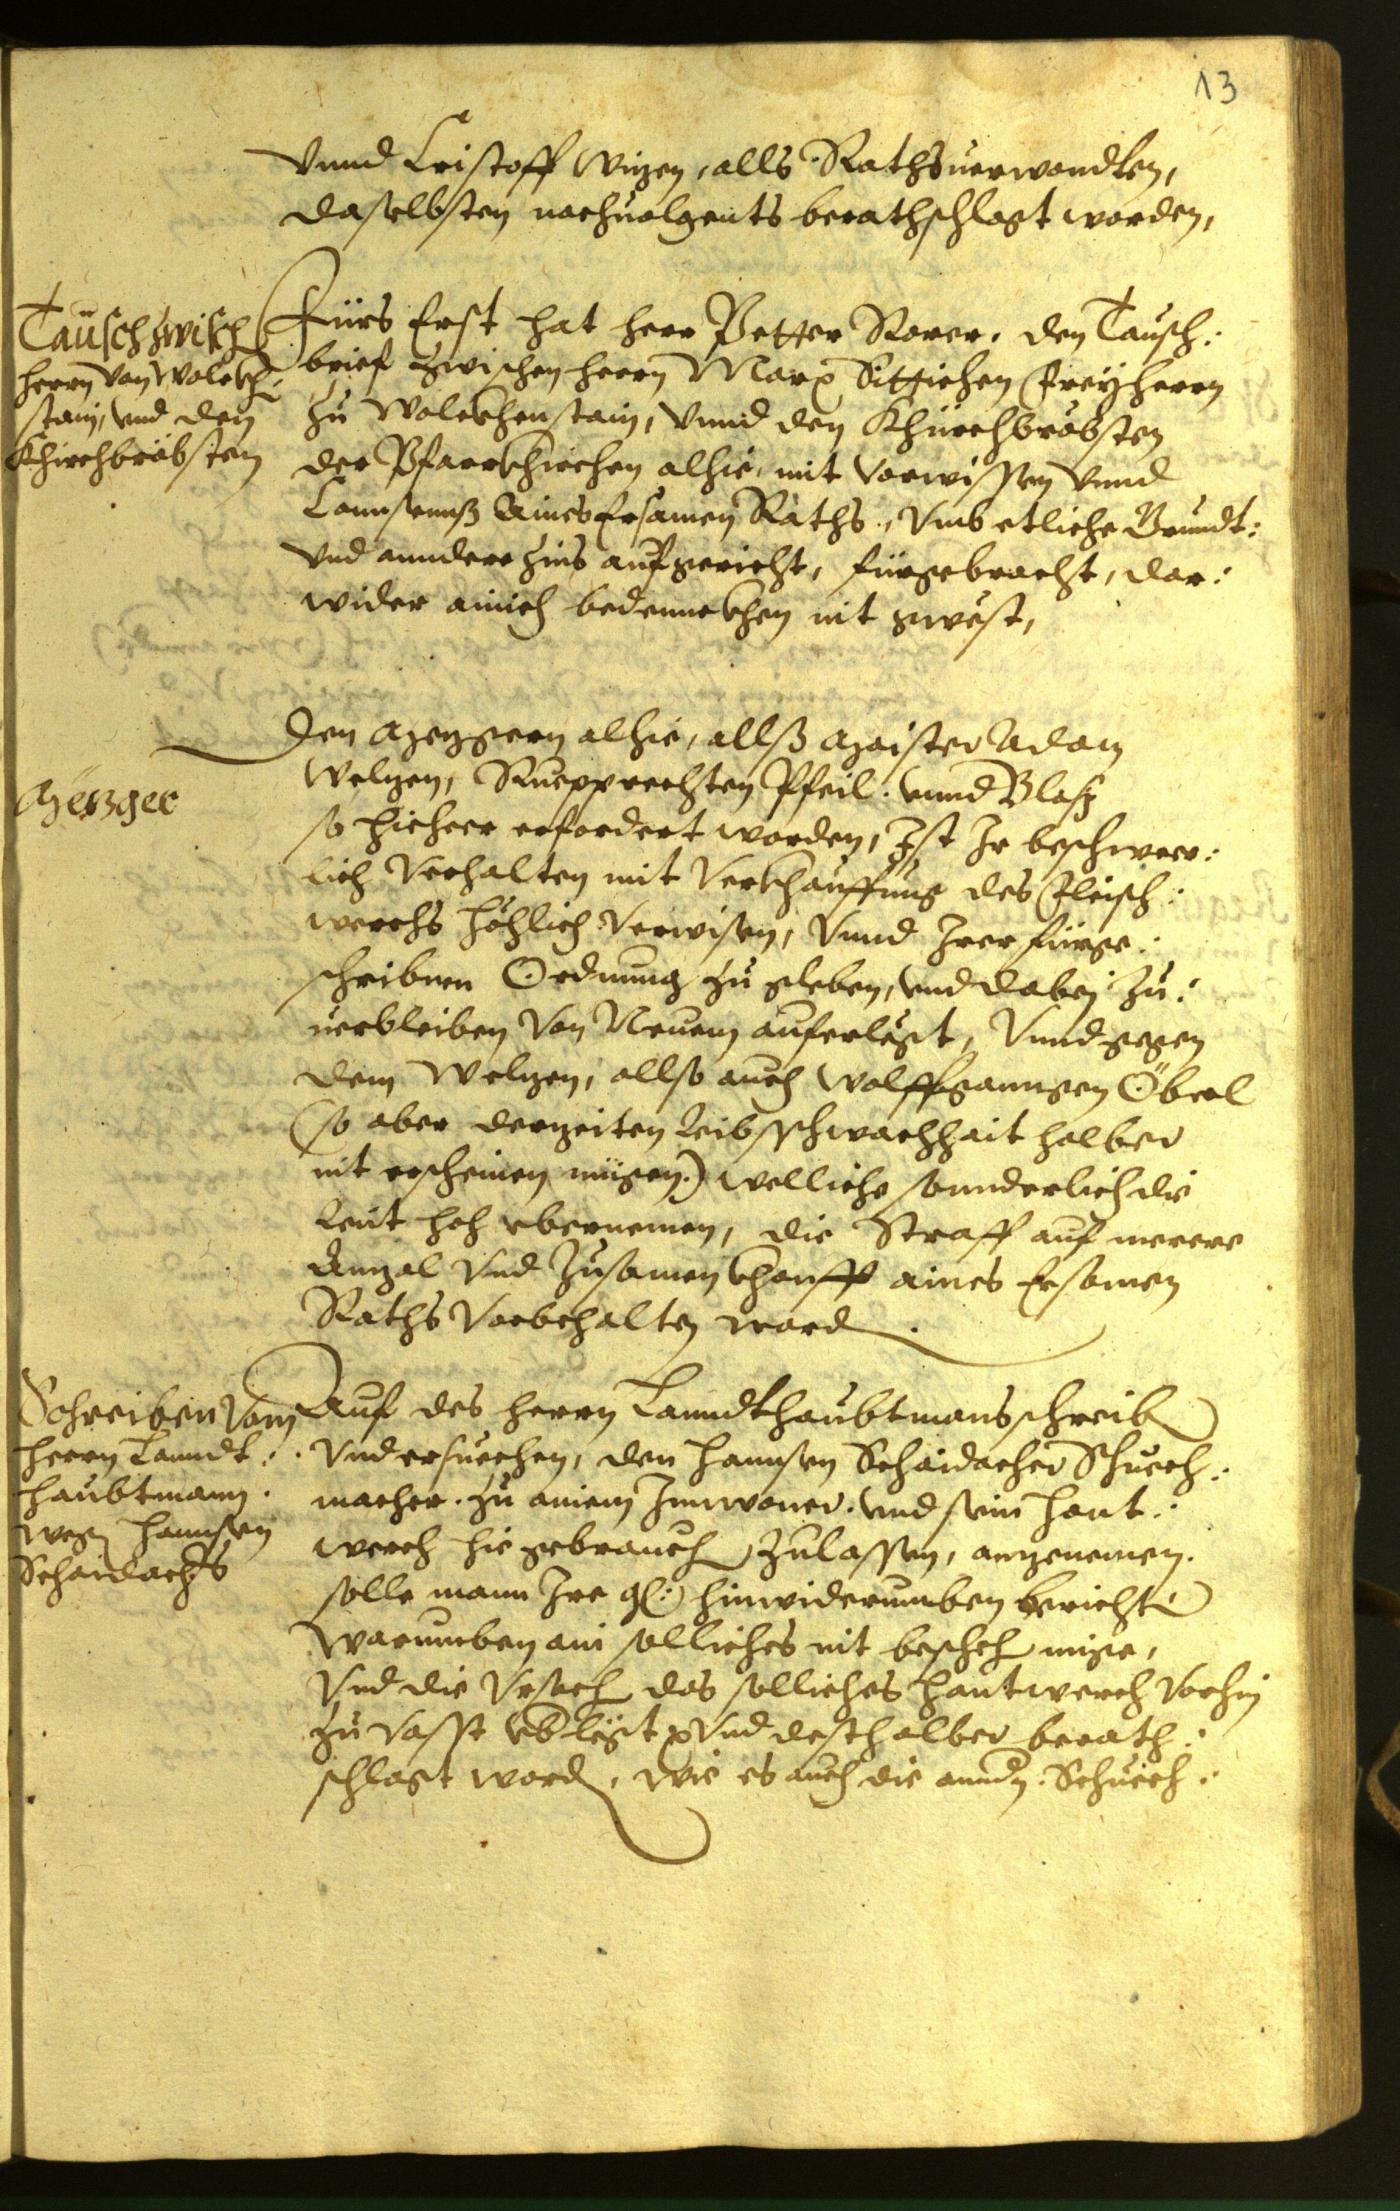 13
Vnnd Cristoff Wizen, alls Rathsuerwandten,
daselbsten nachuolgents berathschlagt worden,
Tausch zwisch
herrn von Wolckh:
stain, vnd den
Khirchbröbsten
Fürs Erst hat herr Petter Rorer, den Tausch:
brief zwischen herrn Marx Sittichen Freyherrn
zu Wolckhenstain, Vnnd den Khürchbröbsten
der Pfarrkhirchen alhie, mit Vorwissen Vnnd
Consenns Aines Ersamen Raths, Vmb etliche Grundt:
vnd anndere Zins aufgericht, fürgebracht, dar:
wider ainich bedennckhen nit gwest,
Mezger
Den Mezgern alhie, allß Maister Adam
Welzen, Rueprechten Pfeil vnnd Blasy
so hieheer erfordert worden, Ist Ir beschwer:
lich Verhalten mit Verkhauffung des Fleisch:
werchs höchlich Verwisen, Vnnd Irer fürge:
schribnen Ordnung zu geleben, vnd dabej zu:
uerbleiben Von Neuem auferlegt, Vnnd gegen
dem Welzen, allso auch Wolffganngen Öberl
(so aber derzeiten leibsschwachhait halber
nit erscheinen mügen) welliche sonnderlich die
Leut hoch vbernemen, die Straff auf merere
Anzal Vnd Zusamenkhonfft aines Ersamen
Raths Vorbehalten word.
Schreiben Vom
herrn Lanndt:
haubtmann
wegen Hannsen
Schaidachers
Auf des herrn Lanndthaubtmans schreiben
Vnd ersuechen, den Hannsen Schaidacher Schuech:
macher zu ainem Innwoner vnd sein Hant:
werch hie gebrauch zulassen, anzenemen.
solle mann Ire gl: hinwiderumben berichten
Warumben ain solliches nit beschech müge,
Vnd die Vrsach das solliches Hantwerch Vorhin
zu Vasst vbersezt Vnd desthalber berath:
schlagt word, wie es auch die anndn Schuech: